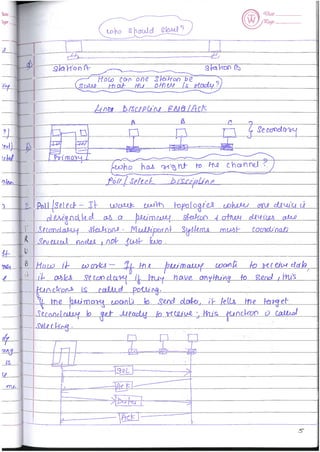 Who should start?
Station A
Station B
How can one station be
sure that the other is ready?
Line Discipline ENQ/ACK
A B C
Secondary
Primary
who has right to the channel?
Poll/Select Discipline
Poll/Select - It work with topologies where one device is
designated as a primary station & other devices are
Secondary stations. Multipoint Systems must coordinate
Several nodes, not just two.
How it works - If the primary wants to receive data,
it asks secondary if they have anything to send, this
functions is called polling.
If the primary wants to send data, it tells the target
Secondary to get ready to receive, this function is called
selecting.
Sel
Ack
Data
Ack
5